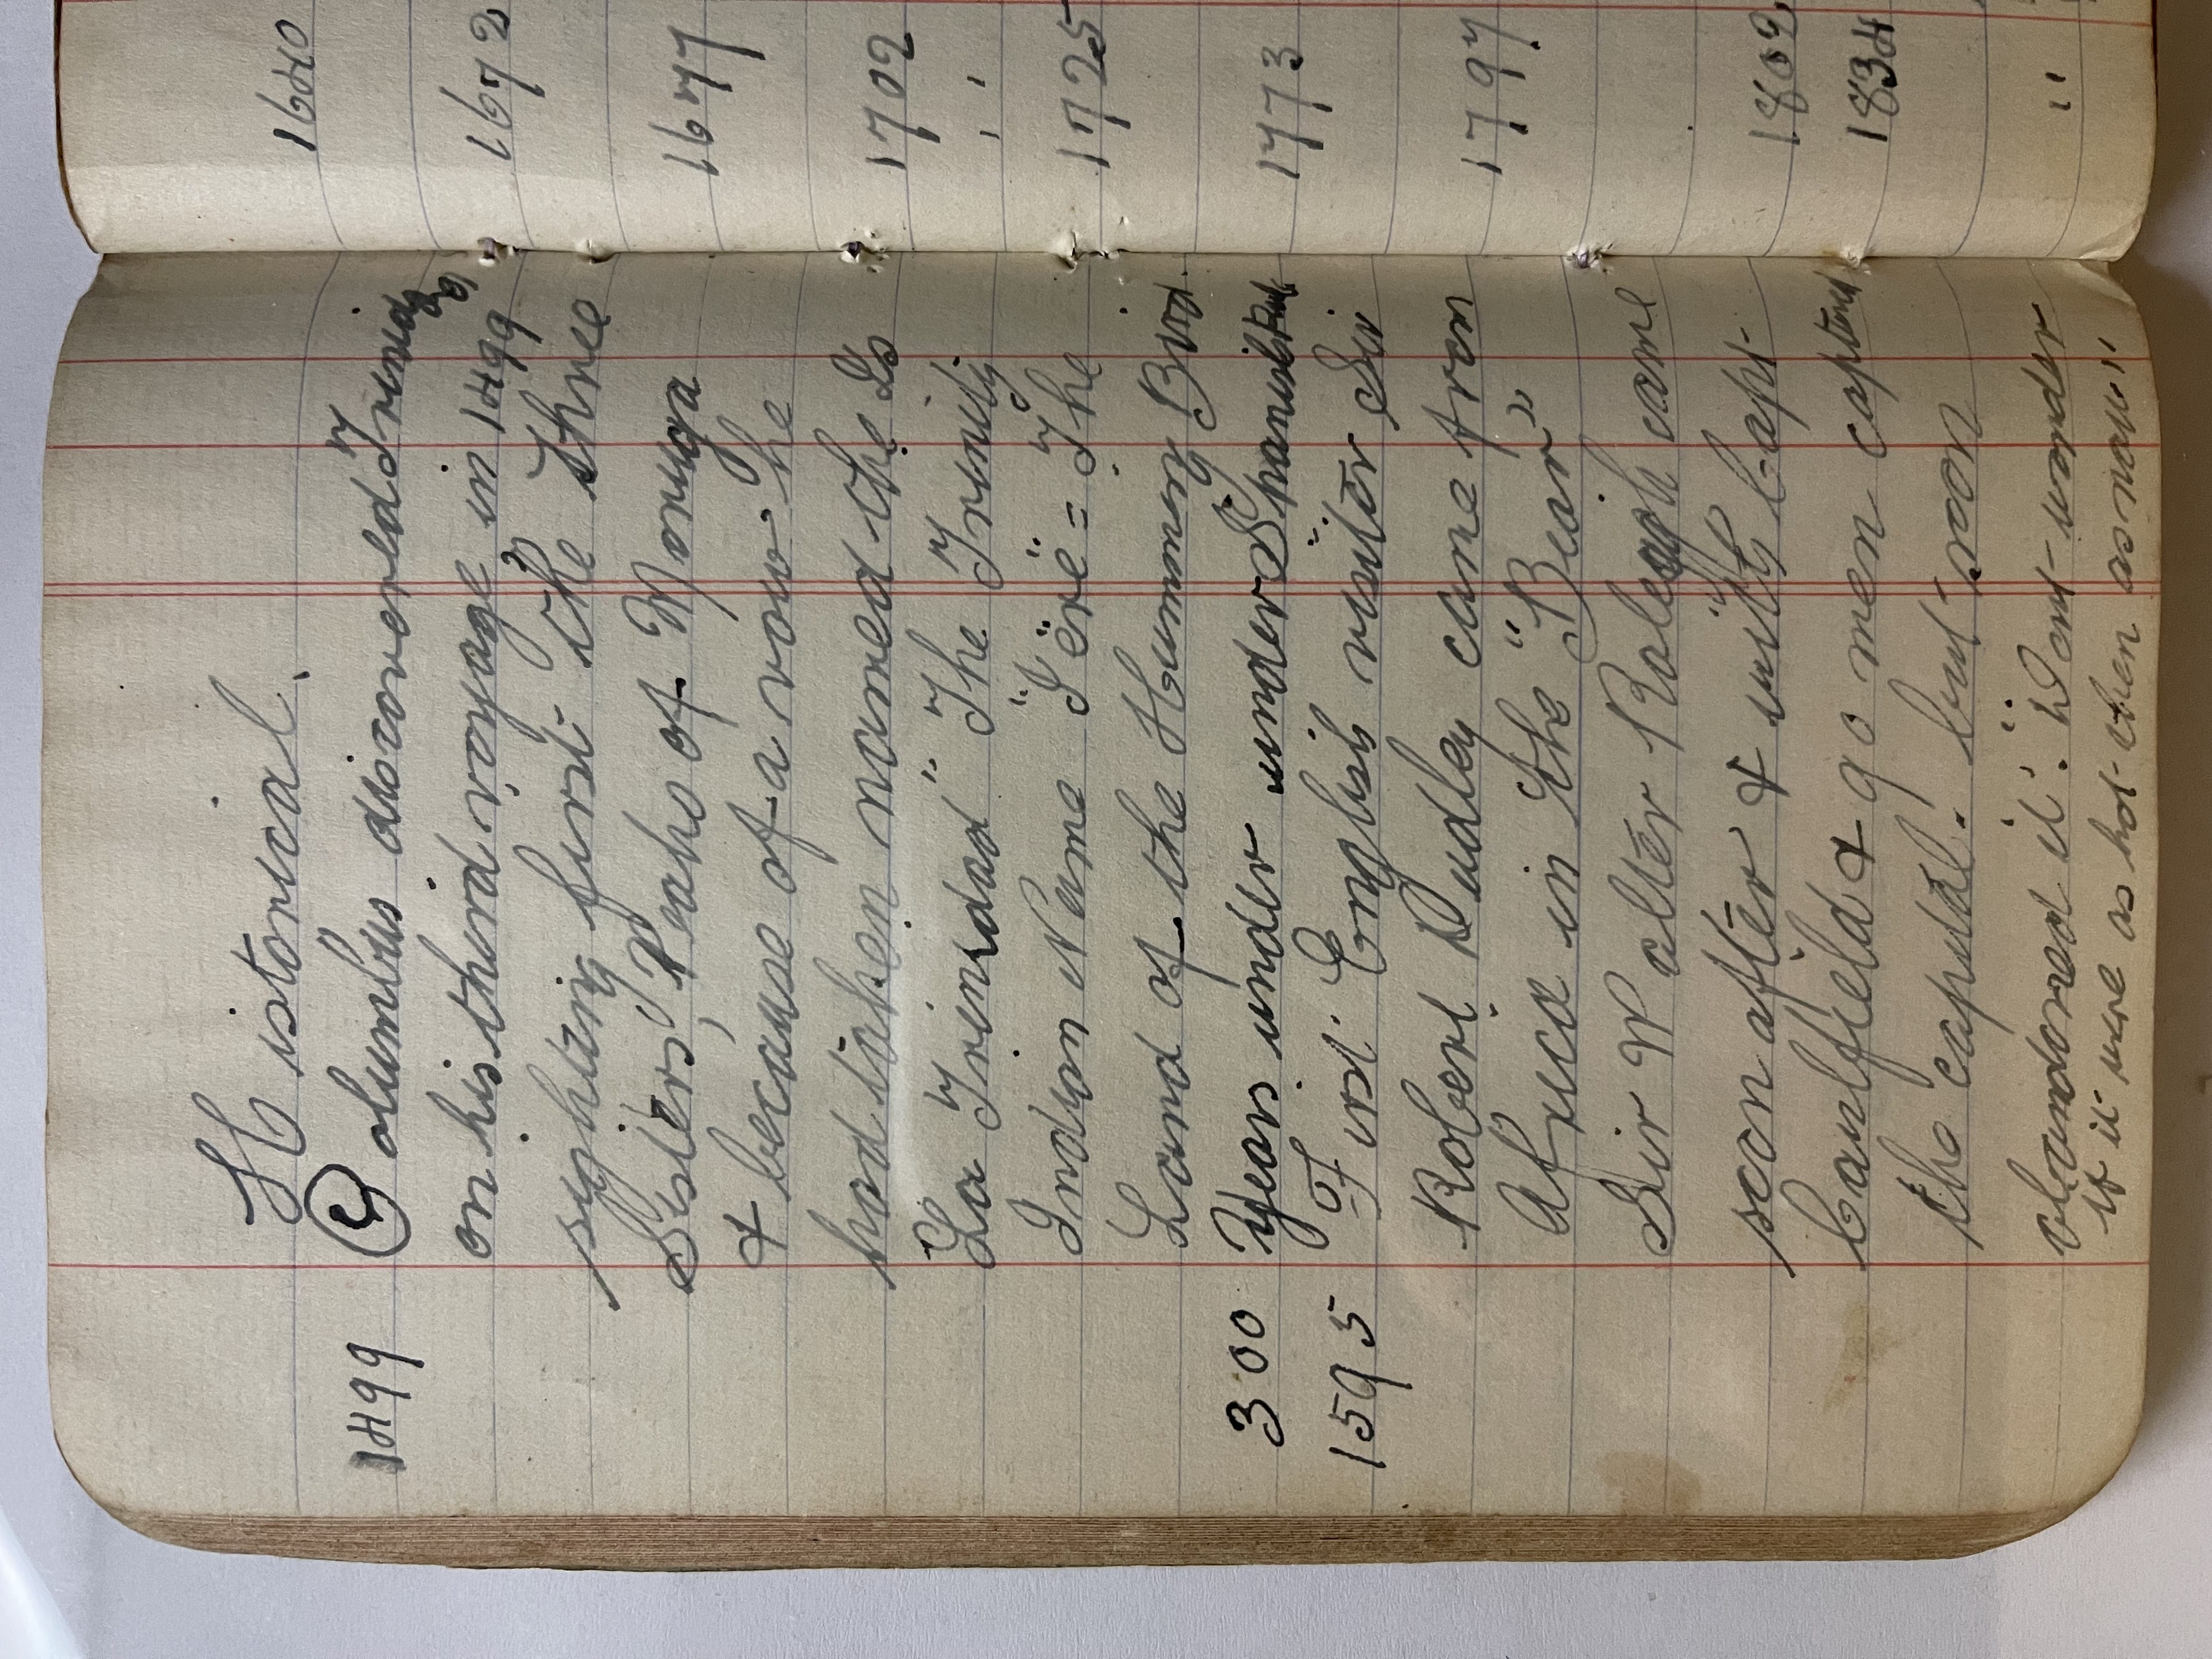 Historical.
1499 Columbus discovered Trinidad
on his third voyage, in 1499
sighting first the three
Sisters', Peaks of Moruga
& because of a vow he
had taken named the Is
"La Trinidad" The Trinity
Indian Name "Iërë" = The
Land of the Humming Bird.
300 Years under under Spanish Rule
1595 First English visiter Sir
Robert Dudley came from
Africa in the "Bear"
Sir Walter Raleigh came
soon after & with Capt
Caulfield & 90 men captured
the capital. but soon
abandoned it. "Dont wonder
if it were as hot then as now"
1640
1672
1677
1702
" "
1725
1773
1797
1802
1834
"